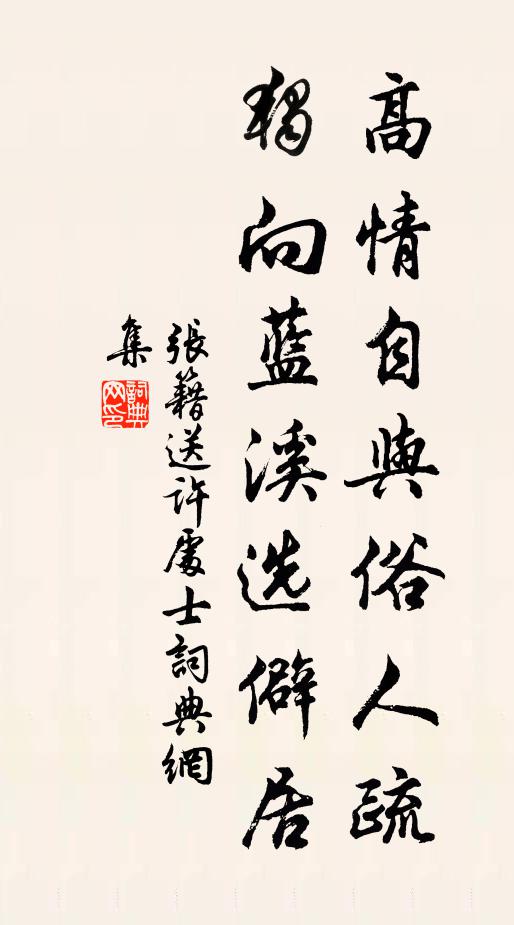 高情自與俗人疏
獨向藍溪选僻居
張籍送許處士詞典網
集
詞典网印